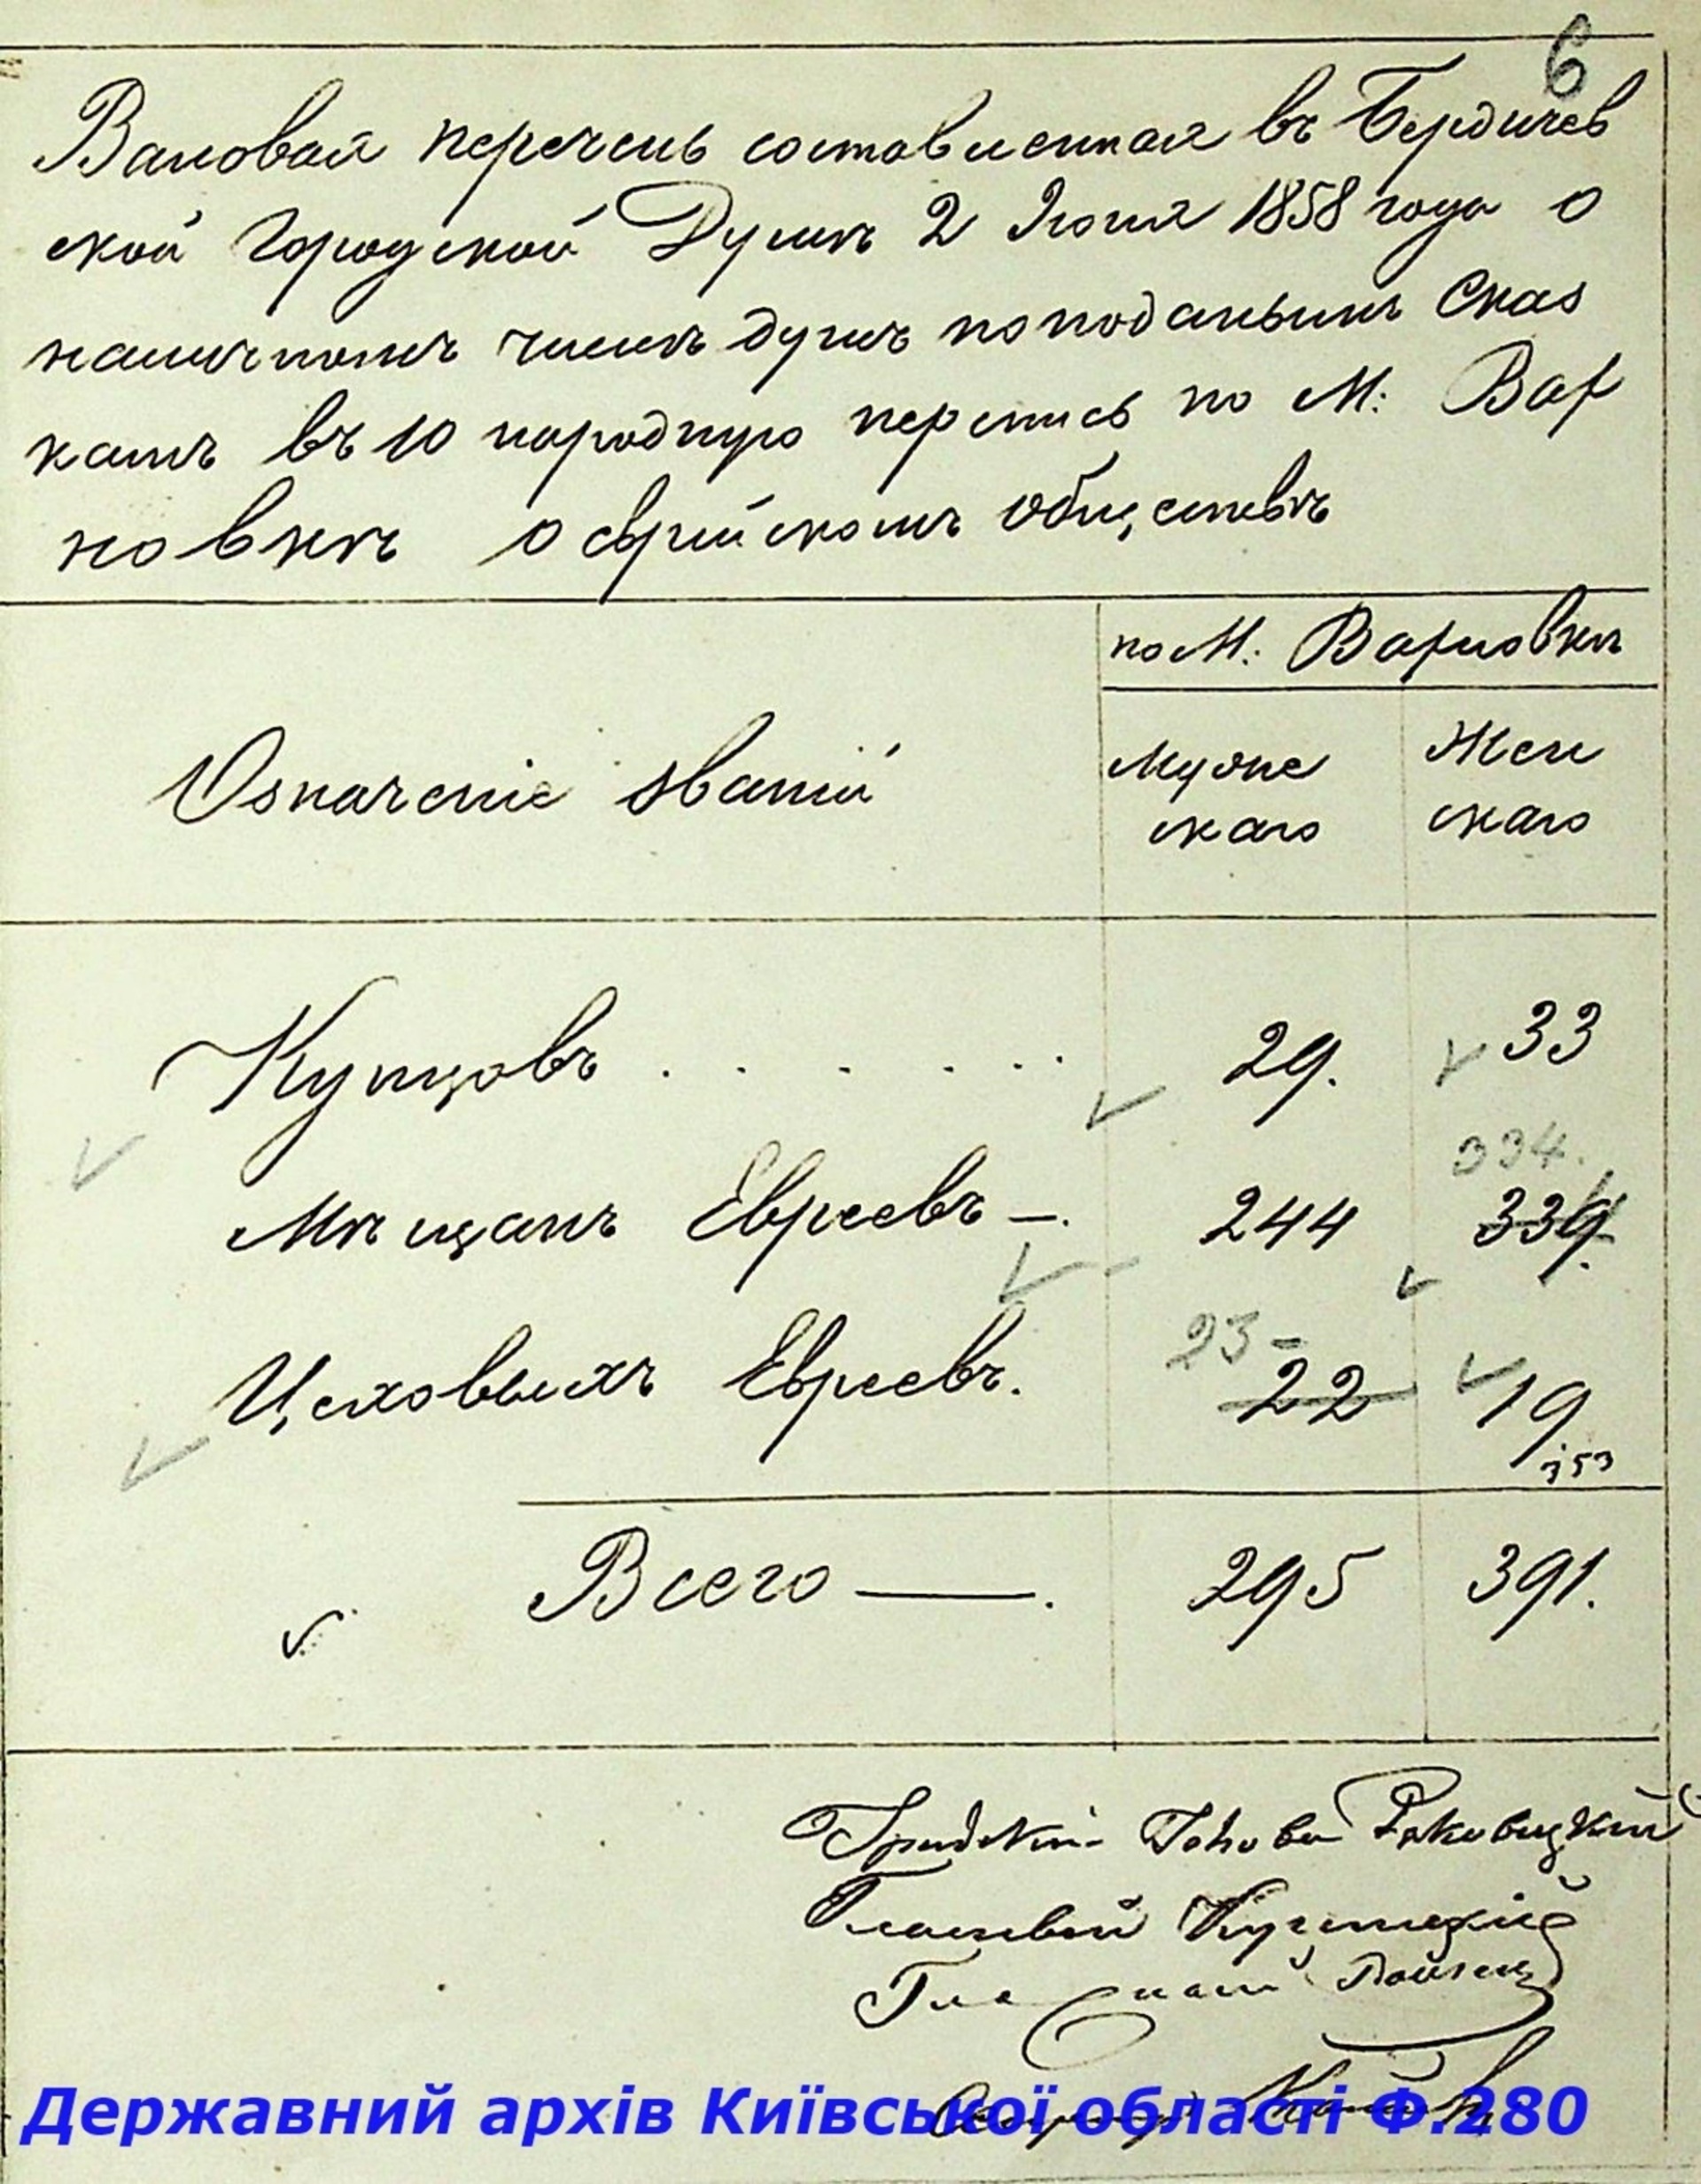 6
Валовая перечень составленная въ Бердичев
ской Городской Думѣ 2 Іюня 1858 года о
наличномъ числѣ душъ по поданнымъ Сказ
камъ въ 10 народную перепись по М: Вар
новкѣ о еврейскомъ обществѣ
по М: Варновкѣ
Означеніе званій
Мужс Жен
скаго скаго
Купцовъ . . . . . . 29. 33
334.
Мѣщанъ Евреевъ —. 244 339.
23 —
Цеховыхъ Евреевъ. 22 19
353
Всего —. 295 391.
Голова Раковицкій
Гласный
Гласный
Державний архів Київської області Ф.280